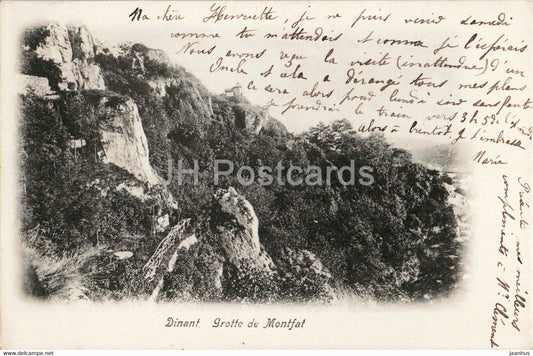 Ma chère Henriette, je ne puis venir samedi
comme tu m'attendais et comme je l'espérais
Nous avons reçu la visite (inattendue) d'un
Oncle et cela a dérangé tous mes plans
Ce sera alors pour lundi soir sans faute
je prendrai le train vers 3h 50
Alors à bientôt, je t'embrasse
Marie
Présente mes meilleurs
compliments à Mr Clément
JH Postcards
Dinant Grotte de Montfat
www.delcampe.net
jaanhus